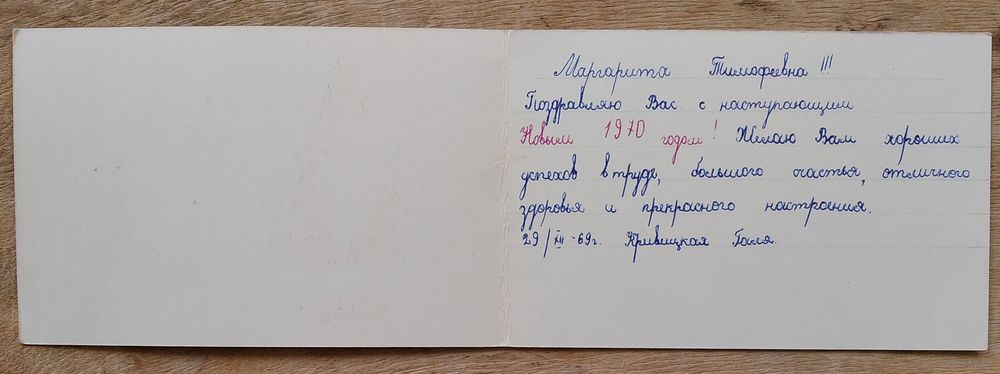 Маргарита Тимофеевна!!!
Поздравляю Вас с наступающим
Новым 1970 годом! Желаю Вам хороших
успехов в труде, большого счастья, отличного
здоровья и прекрасного настроения.
29/XII-69г. Кривицкая Галя.